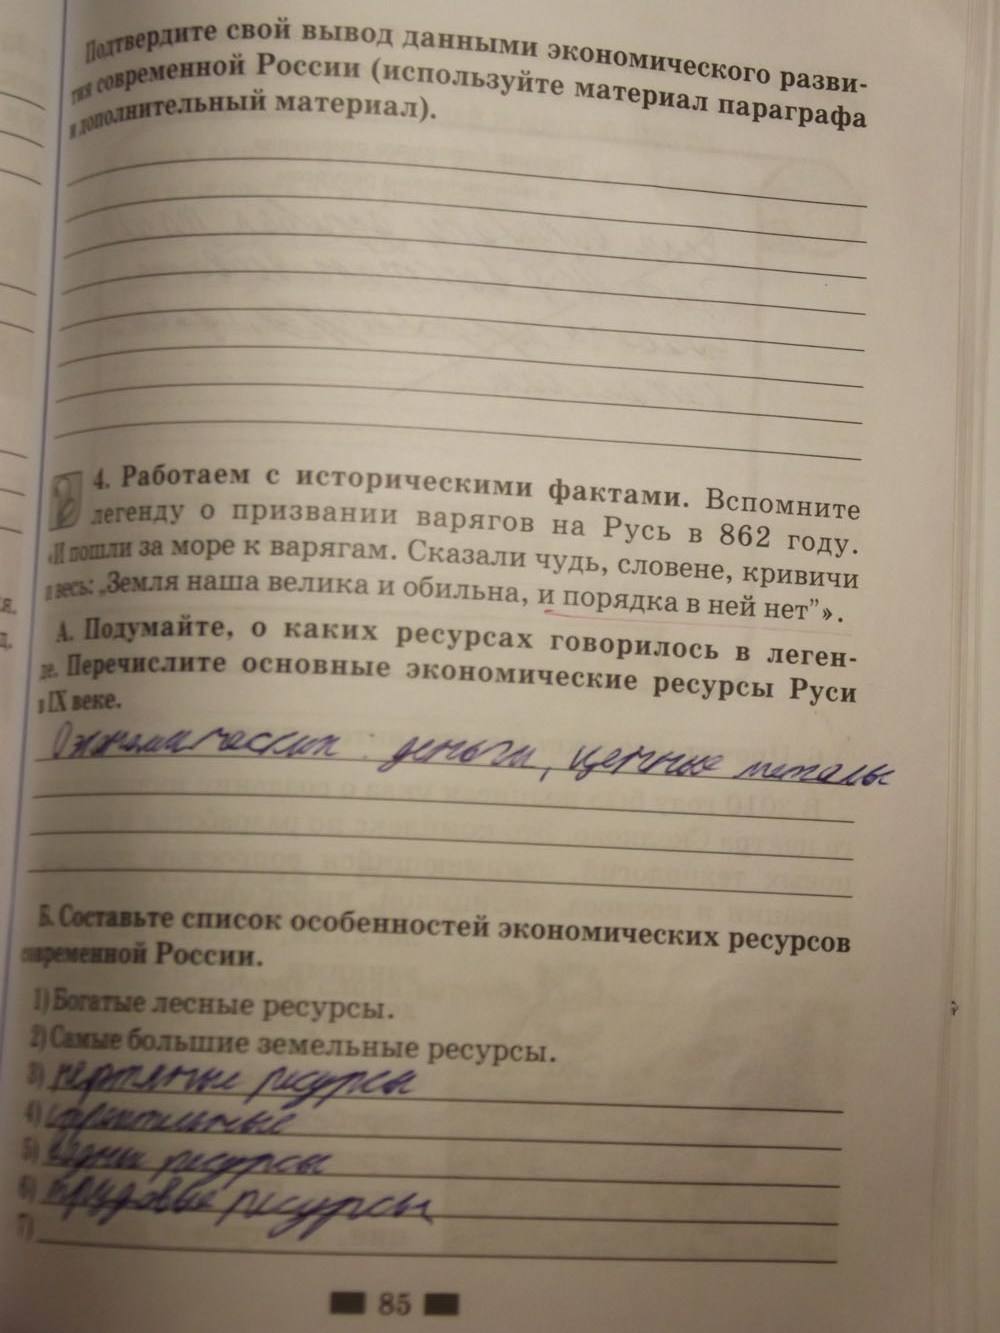 Подтвердите свой вывод данными экономического разви-
тия современной России (используйте материал параграфа
и дополнительный материал).
4. Работаем с историческими фактами. Вспомните
легенду о призвании варягов на Русь в 862 году.
«И пошли за море к варягам. Сказали чудь, словене, кривичи
и весь: „Земля наша велика и обильна, и порядка в ней нет"».
А. Подумайте, о каких ресурсах говорилось в леген-
де. Перечислите основные экономические ресурсы Руси
в IX веке.
деньги, ценные металы
Б. Составьте список особенностей экономических ресурсов
современной России.
1) Богатые лесные ресурсы.
2) Самые большие земельные ресурсы.
3) нефтяные ресурсы
4) строительные
5) водные ресурсы
6) трудовые ресурсы
7)
85